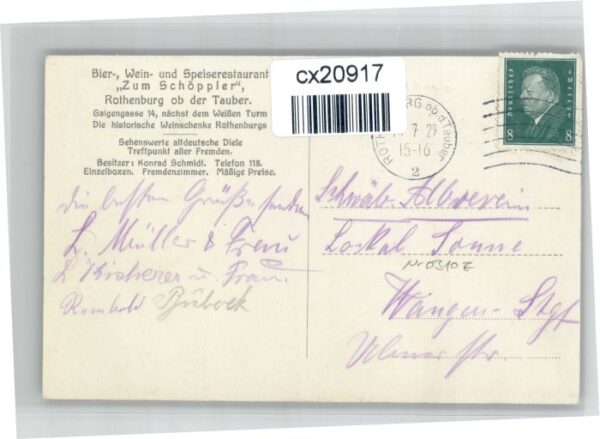 Bier-, Wein- und Speiserestaurant
„Zum Schöppler",
Rothenburg ob der Tauber.
Galgengasse 14, nächst dem Weißen Turm
Die historische Weinschenke Rothenburgs
Sehenswerte altdeutsche Diele
Treffpunkt aller Fremden.
Besitzer: Konrad Schmidt. Telefon 118.
Einzelboxen. Fremdenzimmer. Mäßige Preise.
cx20917
RG ob d Tauber
7 2
15-16
2
Deutsches Reich
8 8
die besten Grüße senden
L. Müller & Frau
L Kircherer u. Frau.
Reinhold Bübeck
Schwäb Albverein
Lokal Sonne
Nr 0310 E
Wangen-Stgt
Ulmer str.